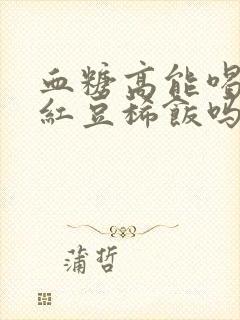 血糖高能喝
紅豆稀飯吗
蒲哲